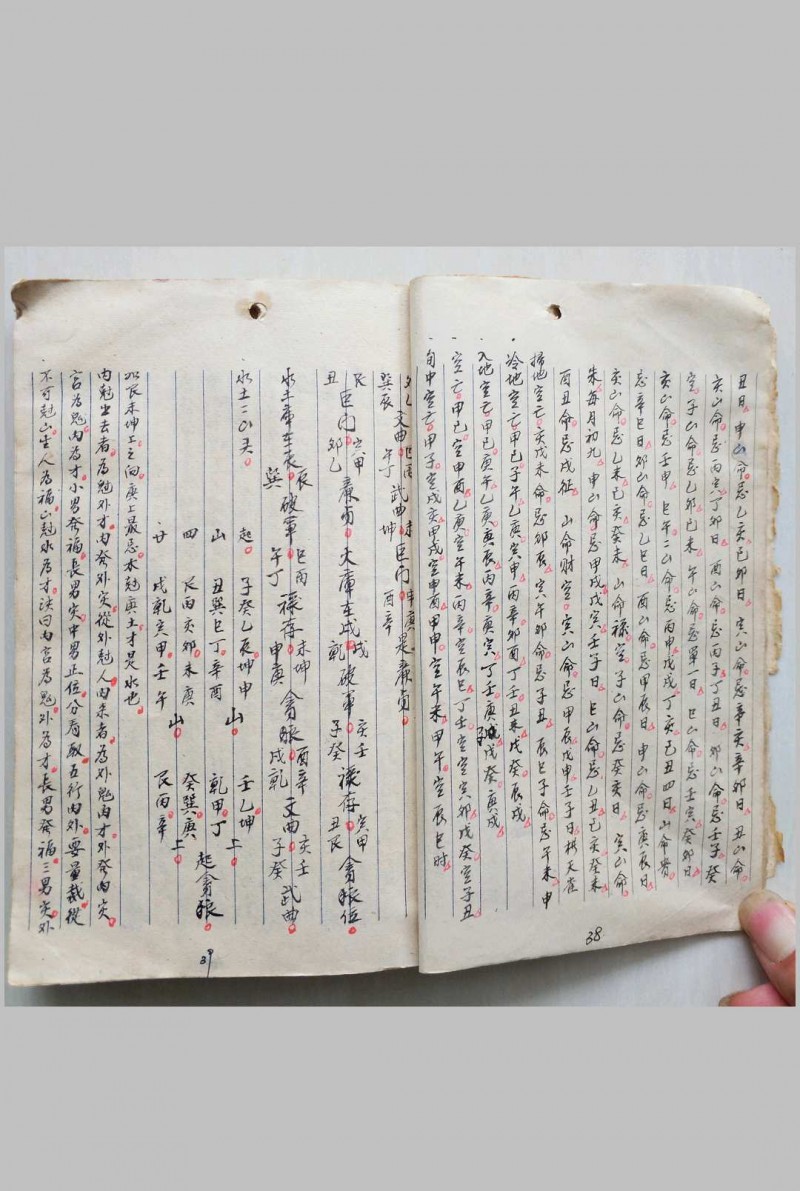 丑日申山命忌乙亥己卯日寅山命忌辛亥辛卯日丑山命
亥山命忌丙寅丁卯日酉山命忌丙子丁丑日卯山命忌壬子癸
空子山命忌乙卯巳未午山命忌單一日巳山命忌壬寅癸卯日
亥山命忌壬申巳午二山命忌丙申戊戌丁亥己丑四日山命贵
忌辛巳日卯山命忌乙巳日酉山命忌甲辰日申山命忌庚辰日
亥山命忌乙未己亥癸未山命禄空子山命忌癸亥日寅山命
朱每月初九申山命忌甲戌戊寅壬子日巳山命忌乙丑己亥癸未
酉丑命忌戌征山命财空寅山命忌甲辰戊申壬子日栱天雀
掃地空亡亥戌未命忌卯辰寅午卯命忌子丑辰巳子命忌午未申
冷地空亡甲己子午乙庚寅申丙辛卯酉丁壬丑未戊癸辰戌
入地空亡甲己庚午乙庚庚辰丙辛庚寅丁壬庚子戊癸庚戌
空亡甲己空申酉乙庚空午未丙辛空辰巳丁壬空空寅卯戊癸空子丑
旬中空亡甲子空戌亥甲戌空申酉甲申空午未甲午空辰巳时
38
文曲
巽辰
午丁
武曲
坤
巨门申庚是廉贞
酉辛
艮
丑
巨门
卯乙
廉贞
火庫在戌
戌
乾
破軍
亥壬
子癸
禄存
寅甲
丑艮
貪狼位
水土庫在辰
辰
巽
破軍
巳丙
午丁
禄存
未坤
申庚
貪狼
酉辛
戌乾
文曲
亥壬
子癸
武曲
水土一凶灵
起子癸乙辰坤申山壬乙坤上
山丑巽巳丁辛酉乾甲丁起貪狼
四艮丙亥卯未庚山癸巽庚上
廿戌乾寅甲壬午艮丙辛
如艮未坤上之向庚上最忌木尅寅土才是水也
内尅出去者為尅外才内發外灾從外尅人内来者為外尅内才外發内灾
宫為尅内為才小男發福長男灾中男正位分局取五行内外要量裁從
不可尅山生人為福山尅水為才诀曰内宫為尅外為才長男發福三男灾外
39